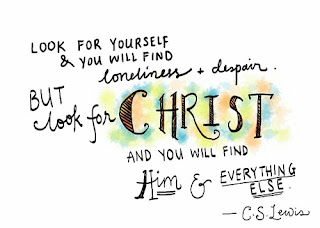 LOOK FOR YOURSELF
& YOU WILL FIND
loneliness + despair.
BUT
look for CHRIST
AND YOU WILL FIND
Him & EVERYTHING
ELSE.
— C.S. Lewis